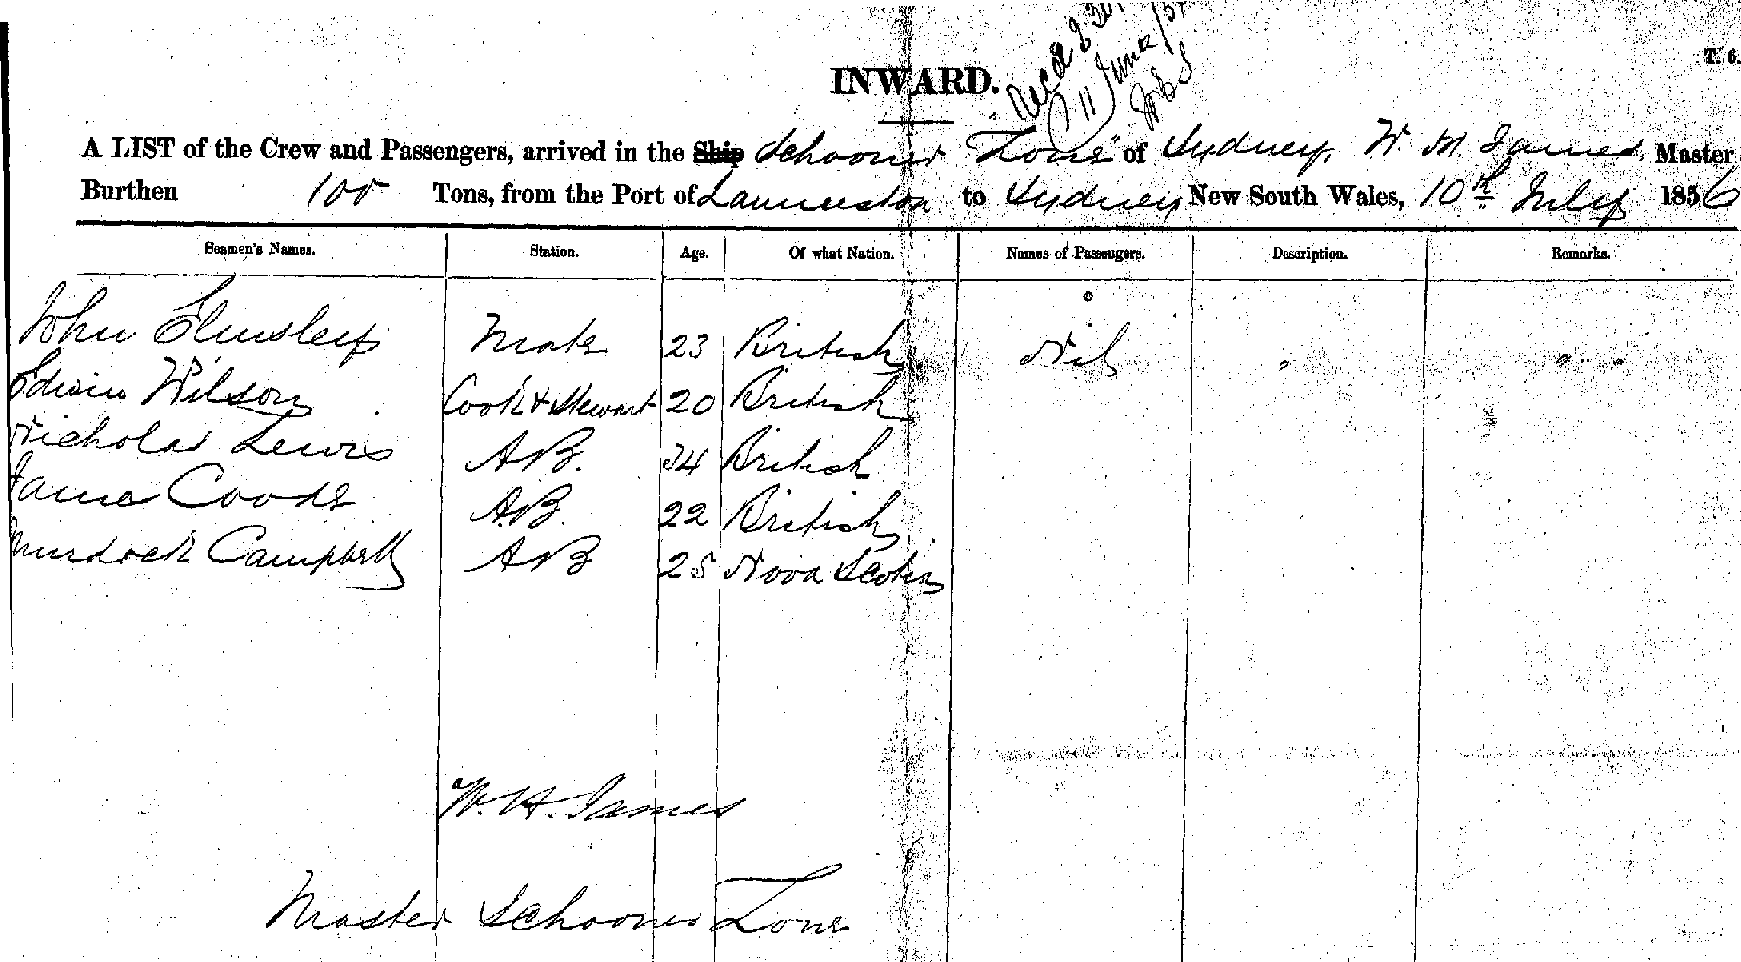 T. 6.
Recd
11 June
INWARD.
A LIST of the Crew and Passengers, arrived in the Ship Schooner "Lone" of Sydney, W. M. James, Master
Burthen 100 Tons, from the Port of Launceston to Sydney New South Wales, 10th July 1856
Seamen's Names. Station. Age. Of what Nation. Names of Passengers. Description. Remarks.
John Elmsley Mate 23 British Nil " " "
Edwin Wilson Cook & Steward 20 British
Nicholas Lewis AB. 34 British
James Coode AB. 22 British
Murdock Campbell AB 25 Nova Scotia
W. H. James
Master Schooner Lone